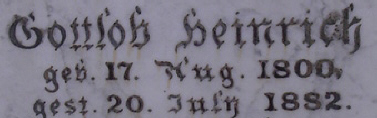 Gottlob Heinrich
geb. 17. Aug. 1800,
gest. 20. July 1882.